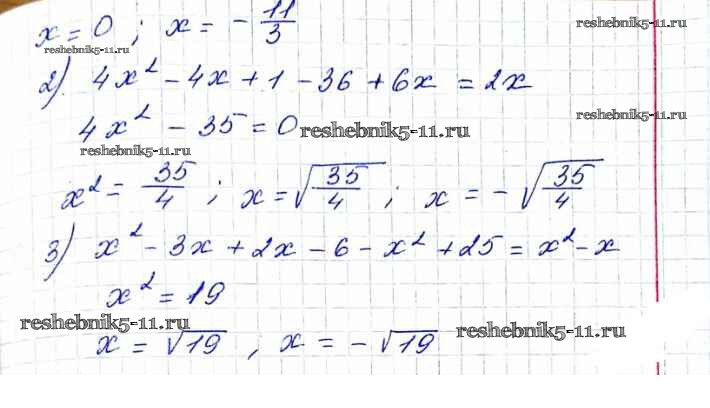 x = 0 ; x = - 11/3
reshebnik5-11.ru
reshebnik5-11.ru
2) 4x² - 4x + 1 - 36 + 6x = 2x
4x² - 35 = 0
reshebnik5-11.ru
reshebnik5-11.ru
reshebnik5-11.ru
x² = 35/4 ; x = √(35/4) ; x = - √(35/4)
3) x² - 3x + 2x - 6 - x² + 25 = x² - x
x² = 19
reshebnik5-11.ru
reshebnik5-11.ru
x = √19 , x = - √19